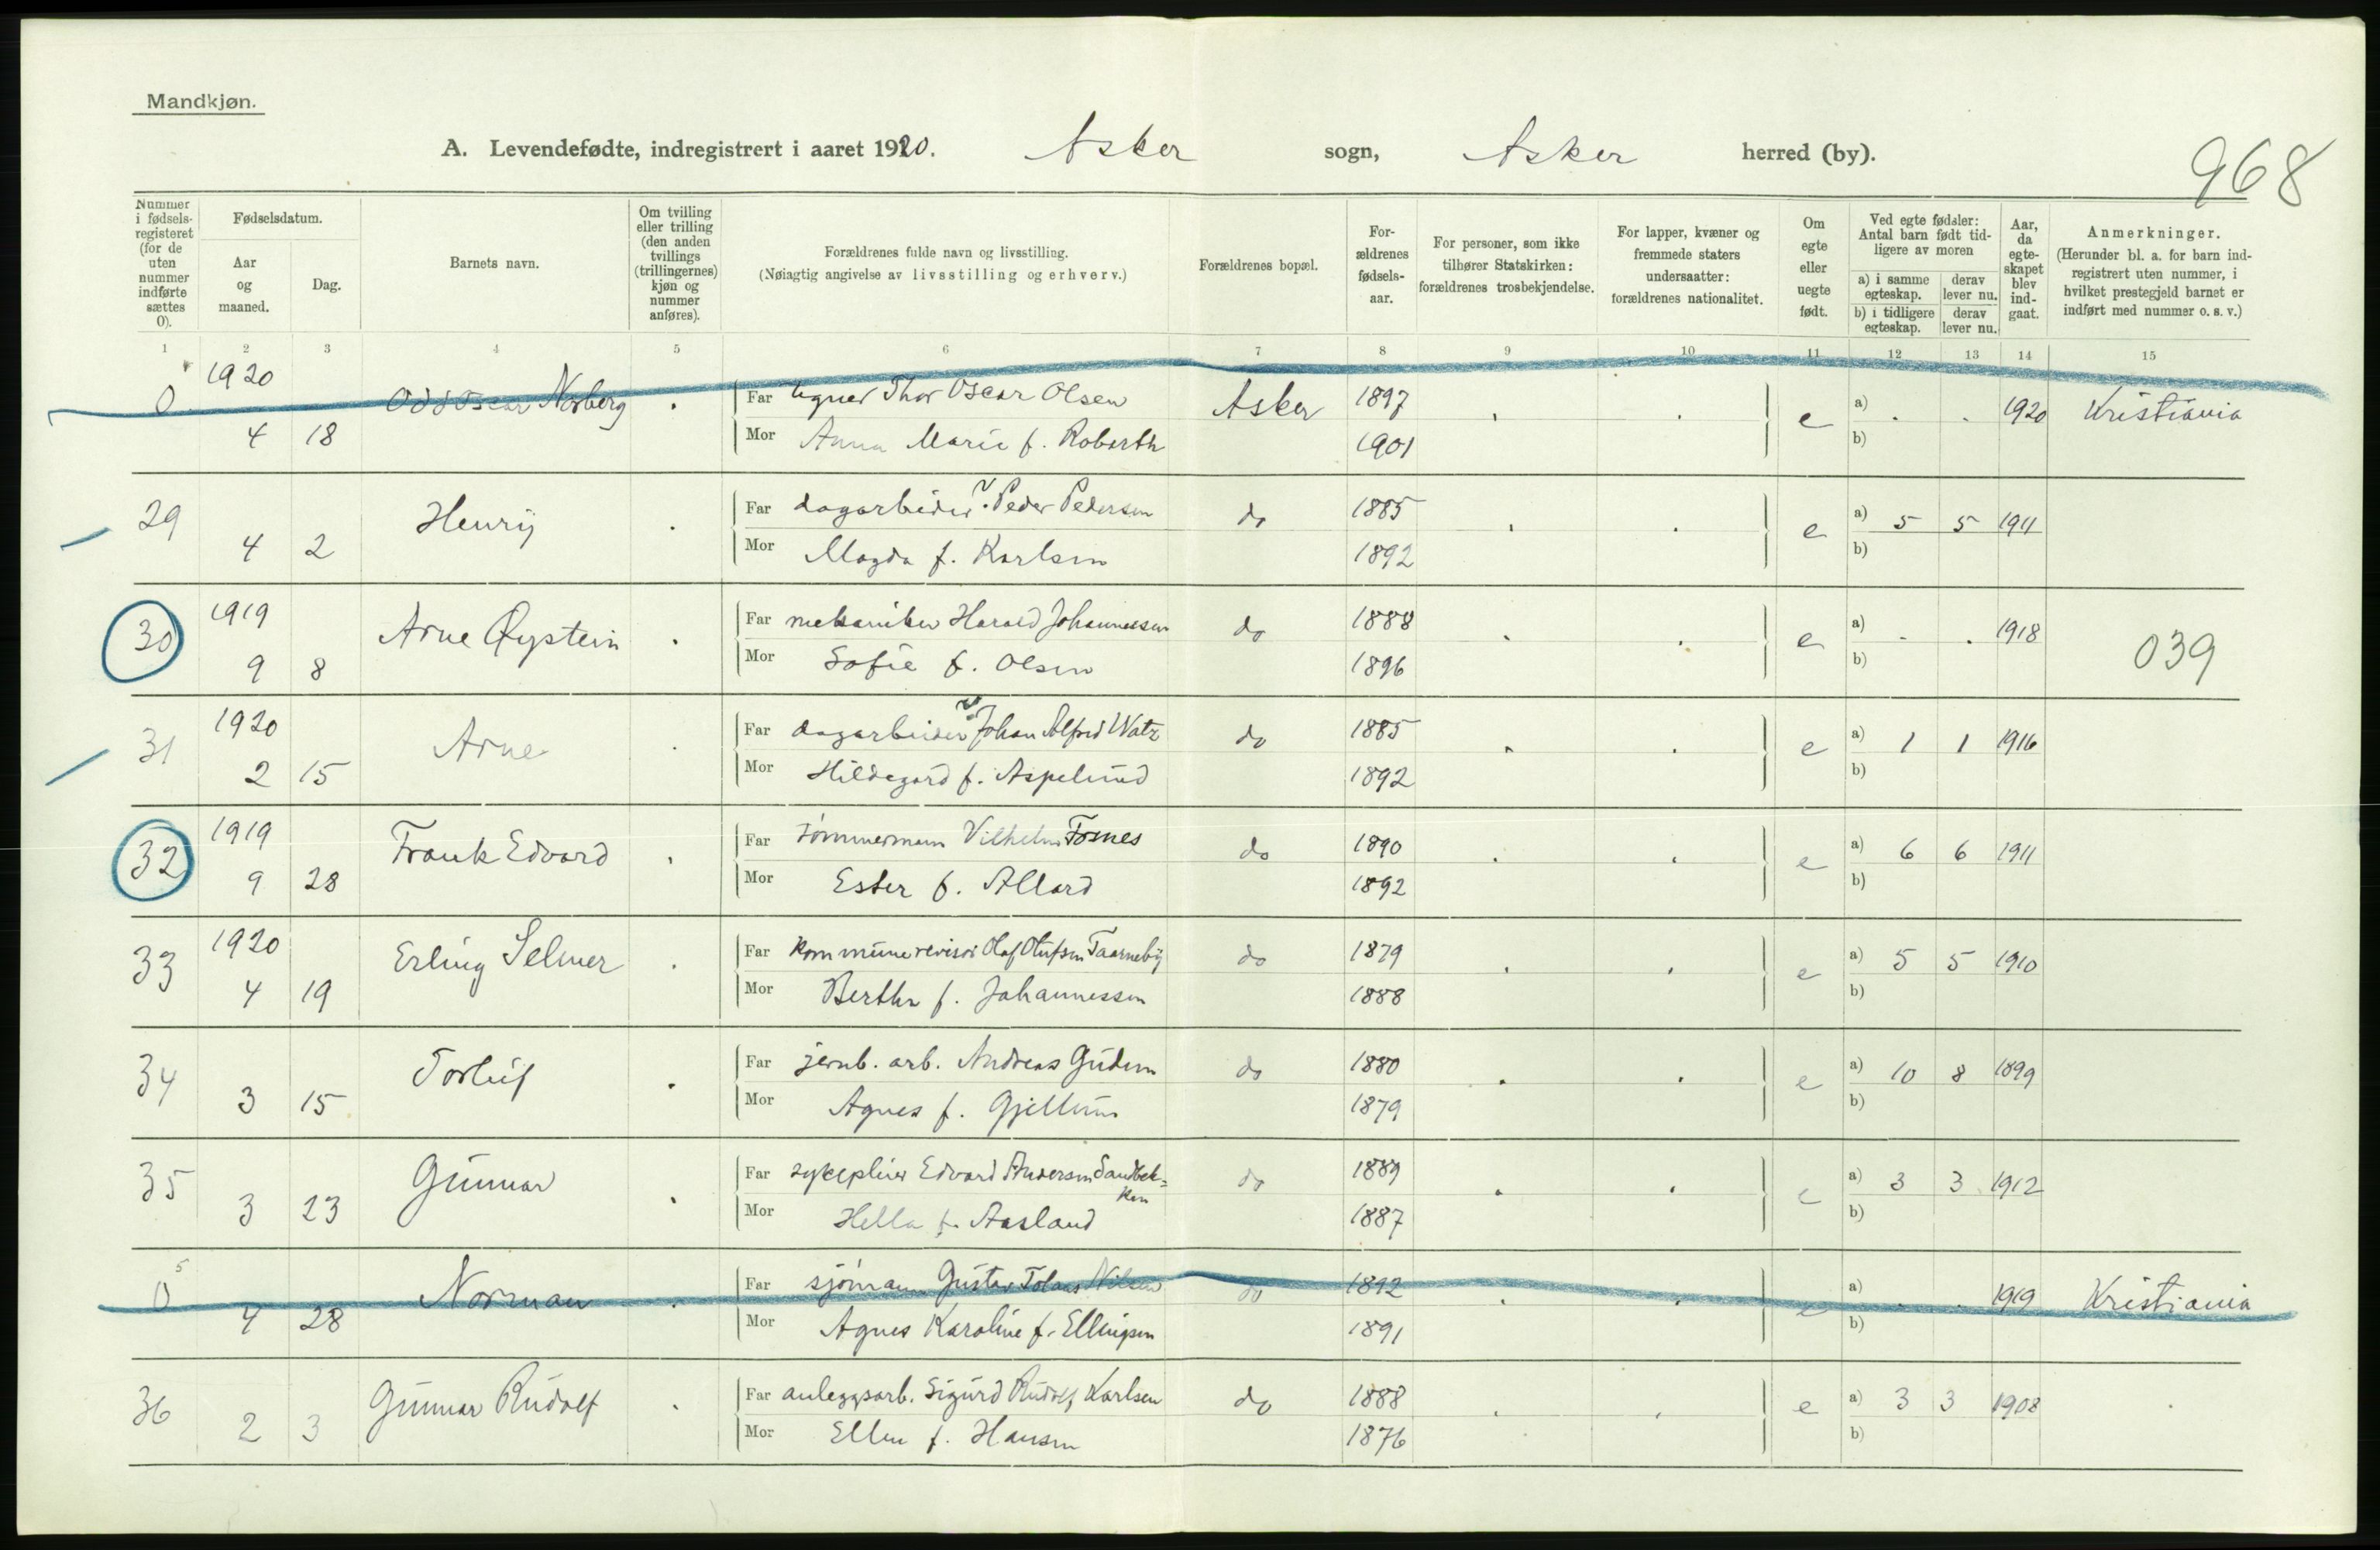 Mandkjøn.
A. Levendefødte, indregistrert i aaret 1920. Asker sogn, Asker herred (by).
968
Nummer i fødsels-registeret (for de uten nummer indførte sættes 0).
Fødselsdatum.
Aar og maaned.
Dag.
Barnets navn.
Om tvilling eller trilling (den anden tvillings (trillingernes) kjøn og nummer anføres).
Forældrenes fulde navn og livsstilling.
(Nøiagtig angivelse av livsstilling og erhverv.)
Forældrenes bopæl.
For-ældrenes fødsels-aar.
For personer, som ikke tilhører Statskirken: forældrenes trosbekjendelse.
For lapper, kvæner og fremmede staters undersaatter: forældrenes nationalitet.
Om egte eller uegte født.
Ved egte fødsler: Antal barn født tid-ligere av moren
a) i samme egteskap. derav lever nu.
b) i tidligere egteskap. derav lever nu.
Aar, da egte-skapet blev ind-gaat.
Anmerkninger.
(Herunder bl. a. for barn ind-registrert uten nummer, i hvilket prestegjeld barnet er indført med nummer o. s. v.)
1 2 3 4 5 6 7 8 9 10 11 12 13 14 15
0 1920 Odd Oscar Norberg . Far tegner Thor Oscar Olsen Asker 1897 . . e a) . . 1920 Kristiania
4 18 Mor Anna Marie f. Roberth 1901 b)
29 Henry . Far dagarbeider Peder Pedersen do 1885 . . e a) 5 5 1911
4 2 Mor Magda f. Karlsen 1892 b)
30 1919 Arne Øystein . Far mekaniker Harald Johannessen do 1888 . . e a) . . 1918 039
9 8 Mor Sofie f. Olsen 1896 b)
31 1920 Arne . Far dagarbeider Johan Alfred Watz do 1885 . . e a) 1 1 1916
2 15 Mor Hildegard f. Aspelund 1892 b)
32 1919 Frank Edvard . Far tømmermann Vilhelm Fosnes do 1890 . . e a) 6 6 1911
9 28 Mor Ester f. Allard 1892 b)
33 1920 Erling Selmer . Far kommunerevisor Olaf Olufsen Taarneby do 1879 . . e a) 5 5 1910
4 19 Mor Bertha f. Johannessen 1888 b)
34 Torleif . Far jernb. arb. Andreas Gudem do 1880 . . e a) 10 8 1899
3 15 Mor Agnes f. Gjellum 1879 b)
35 Gunnar . Far sykepleier Edvard Andersen Sandbek=
ken do 1889 . . e a) 3 3 1912
3 23 Mor Hella f. Aasland 1887 b)
0 Norman . Far sjømann Gustav Tobias Nilsen do 1892 . . e a) . . 1919 Kristiania
4 28 Mor Agnes Karoline f. Ellingsen 1891 b)
36 Gunnar Rudolf . Far anleggsarb. Sigurd Rudolf Karlsen do 1888 . . e a) 3 3 1908
2 3 Mor Ellen f. Hansen 1876 b)